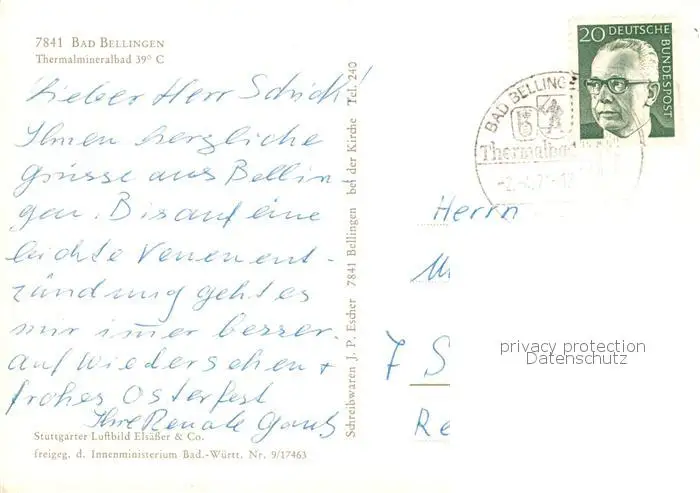 7841 BAD BELLINGEN
Thermalmineralbad 39° C
Lieber Herr Schick!
Ihnen herzliche
Grüsse aus Bellin-
gen. Bis auf eine
leichte Venenent-
zündung geht es
mir immer besser.
Auf Wiedersehen +
frohes Osterfest
Ihre Renate
Stuttgarter Luftbild Elsäßer & Co.
freigeg. d. Innenministerium Bad.-Württ. Nr. 9/17463
Schreibwaren J. P. Escher 7841 Bellingen bei der Kirche Tel. 240
20 DEUTSCHE BUNDESPOST
BAD BELLINGE
Thermalba
Herrn
7 S
Re
privacy protection
Datenschutz